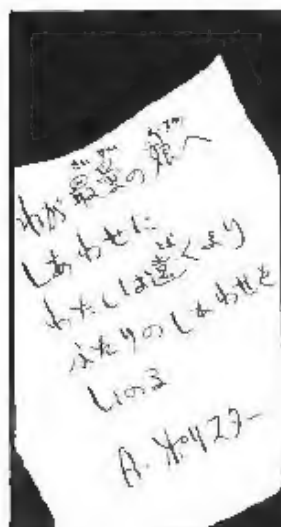 わが最愛の娘へ
しあわせに
わたしは遠くより
ふたりのしあわせを
いのる
A・ポリスター